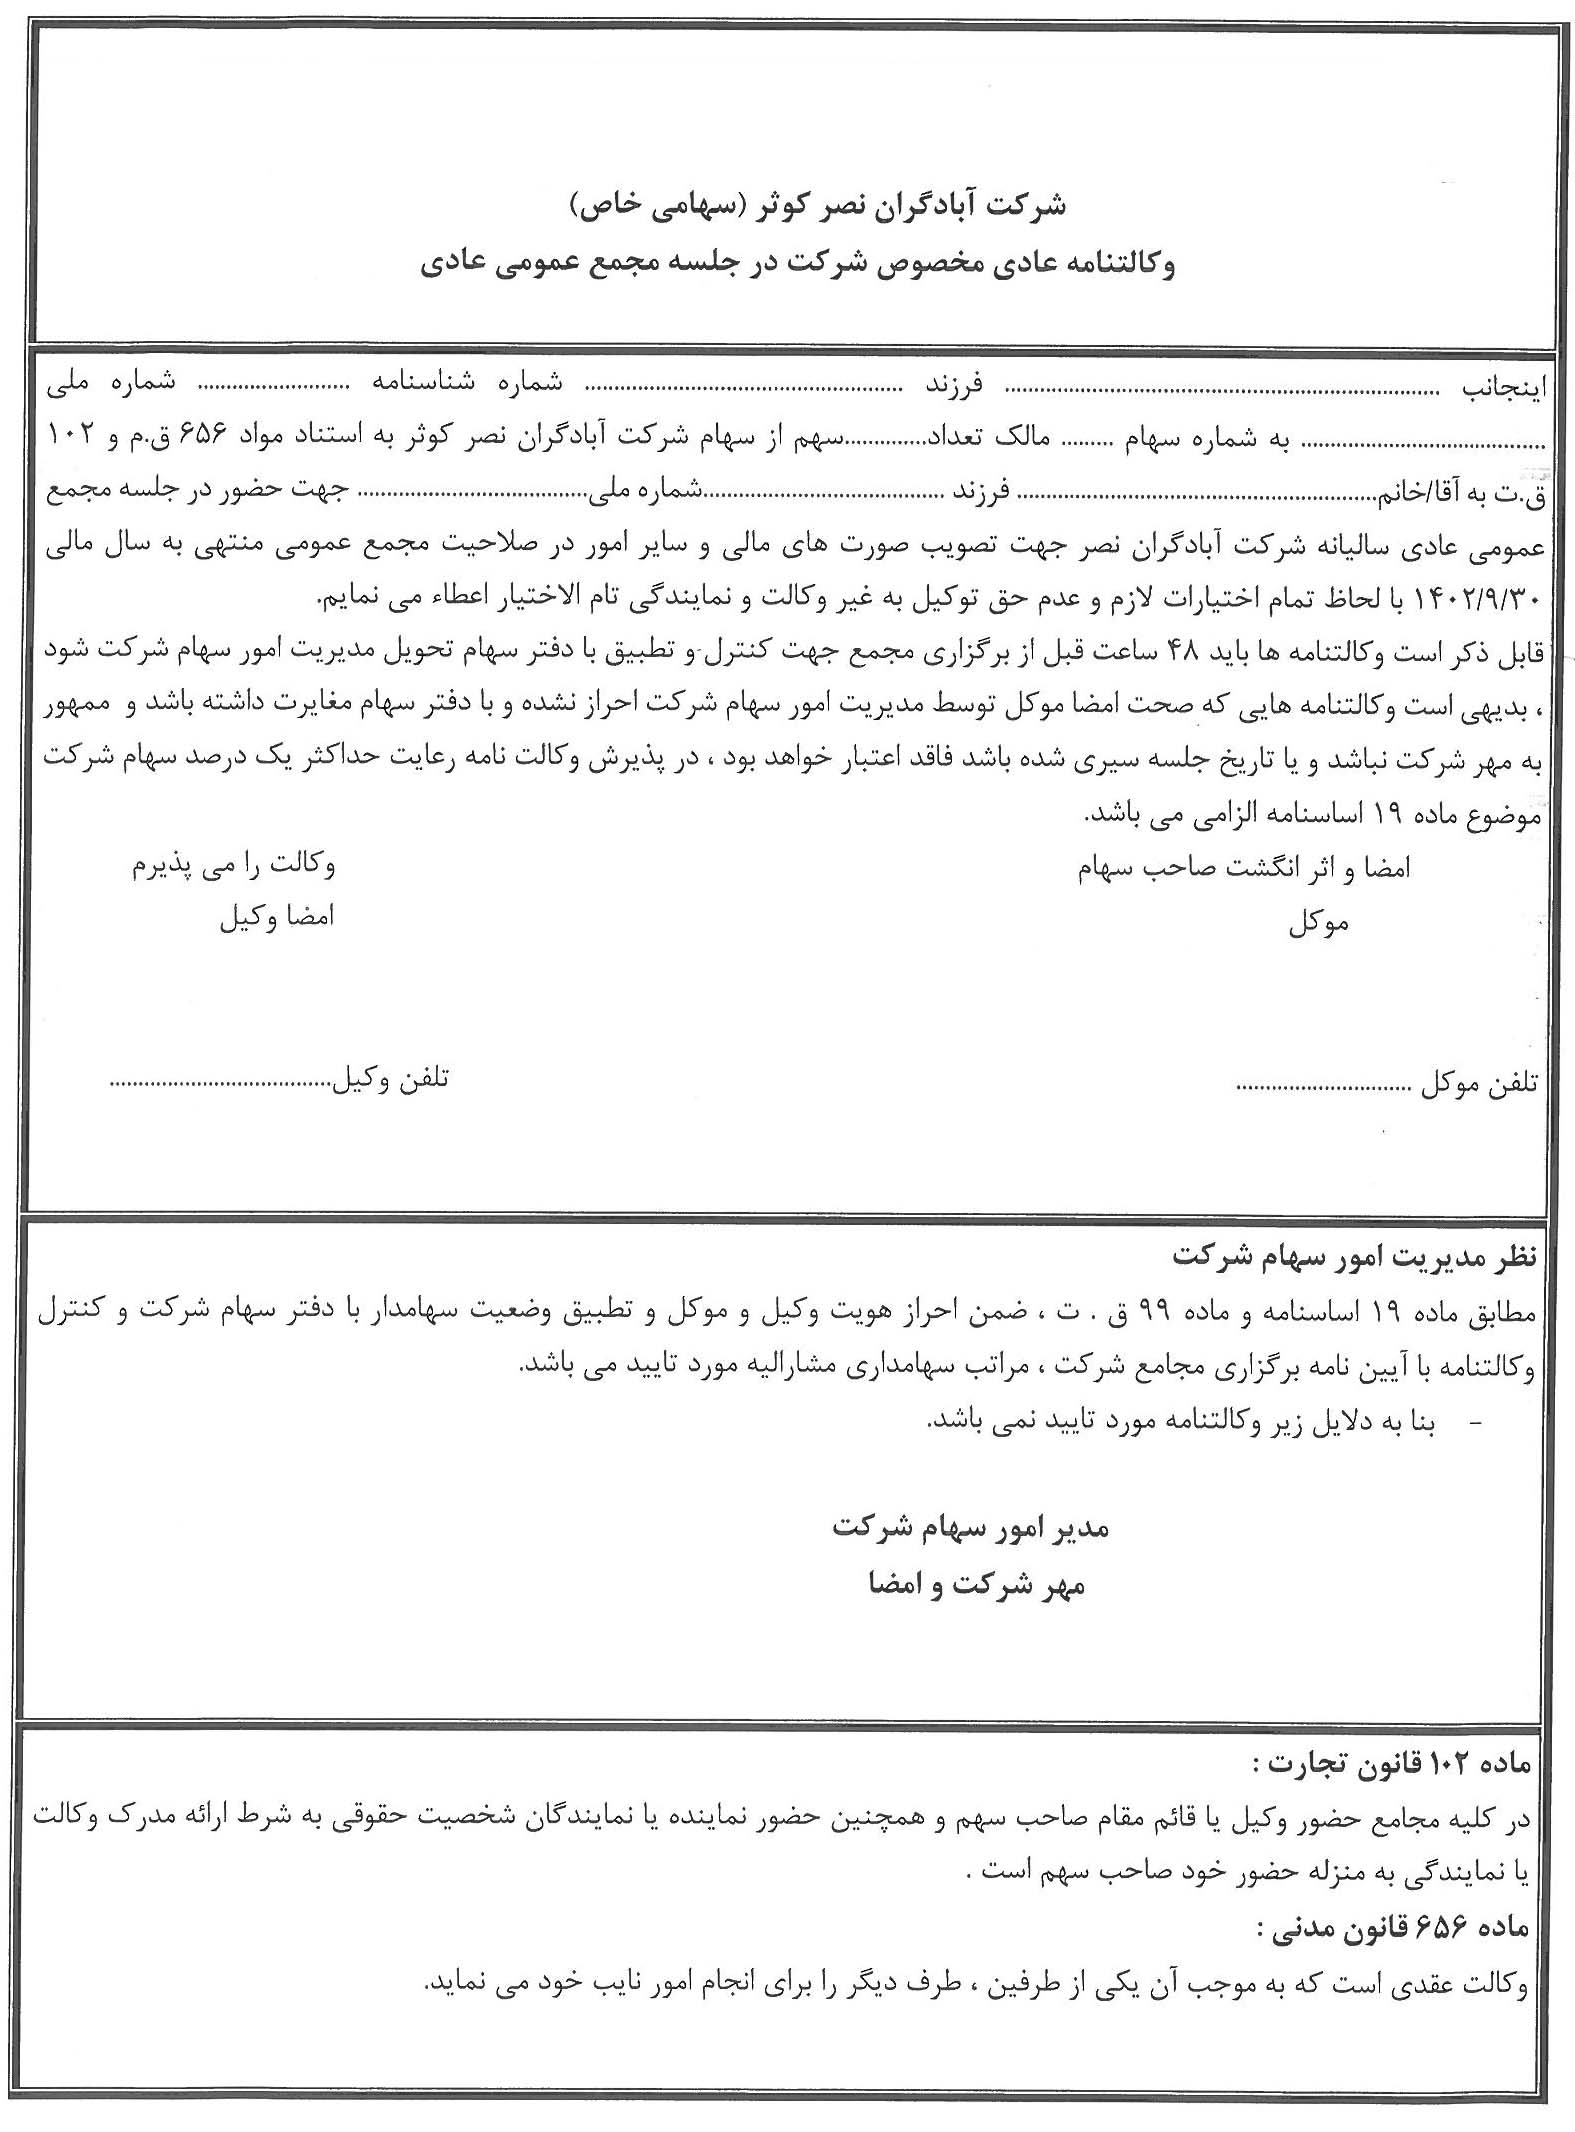 شرکت آبادگران نصر کوثر (سهامی خاص)
وکالتنامه عادی مخصوص شرکت در جلسه مجمع عمومی عادی
اینجانب ........................................................................... فرزند ....................................................... شماره شناسنامه .......................... شماره ملی
.......................................... به شماره سهام ......... مالک تعداد..............سهم از سهام شرکت آبادگران نصر کوثر به استناد مواد ۶۵۶ ق.م و ۱۰۲
ق.ت به آقا/خانم.............................................................. فرزند .........................................شماره ملی........................................ جهت حضور در جلسه مجمع
عمومی عادی سالیانه شرکت آبادگران نصر جهت تصویب صورت های مالی و سایر امور در صلاحیت مجمع عمومی منتهی به سال مالی
۱۴۰۲/۹/۳۰ با لحاظ تمام اختیارات لازم و عدم حق توکیل به غیر وکالت و نمایندگی تام الاختیار اعطاء می نمایم.
قابل ذکر است وکالتنامه ها باید ۴۸ ساعت قبل از برگزاری مجمع جهت کنترل و تطبیق با دفتر سهام تحویل مدیریت امور سهام شرکت شود
، بدیهی است وکالتنامه هایی که صحت امضا موکل توسط مدیریت امور سهام شرکت احراز نشده و با دفتر سهام مغایرت داشته باشد و ممهور
به مهر شرکت نباشد و یا تاریخ جلسه سپری شده باشد فاقد اعتبار خواهد بود ، در پذیرش وکالت نامه رعایت حداکثر یک درصد سهام شرکت
موضوع ماده ۱۹ اساسنامه الزامی می باشد.
امضا و اثر انگشت صاحب سهام وکالت را می پذیرم
موکل امضا وکیل
تلفن موکل .............................. تلفن وکیل......................................
نظر مدیریت امور سهام شرکت
مطابق ماده ۱۹ اساسنامه و ماده ۹۹ ق . ت ، ضمن احراز هویت وکیل و موکل و تطبیق وضعیت سهامدار با دفتر سهام شرکت و کنترل
وکالتنامه با آیین نامه برگزاری مجامع شرکت ، مراتب سهامداری مشارالیه مورد تایید می باشد.
- بنا به دلایل زیر وکالتنامه مورد تایید نمی باشد.
مدیر امور سهام شرکت
مهر شرکت و امضا
ماده ۱۰۲ قانون تجارت :
در کلیه مجامع حضور وکیل یا قائم مقام صاحب سهم و همچنین حضور نماینده یا نمایندگان شخصیت حقوقی به شرط ارائه مدرک وکالت
یا نمایندگی به منزله حضور خود صاحب سهم است .
ماده ۶۵۶ قانون مدنی :
وکالت عقدی است که به موجب آن یکی از طرفین ، طرف دیگر را برای انجام امور نایب خود می نماید.